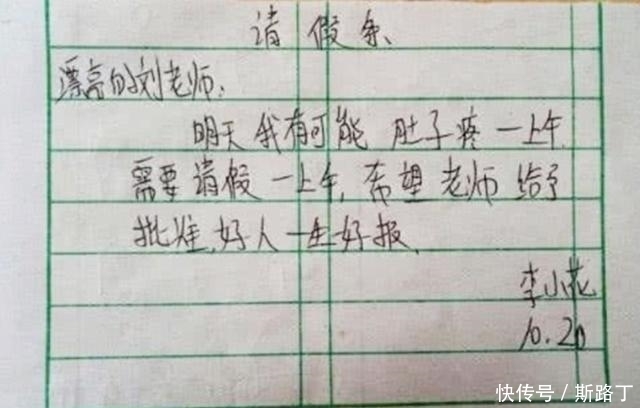 请假条
漂亮的刘老师:
明天我有可能 肚子疼一上午
需要请假一上午,希望老师给予
批准,好人一生好报
李小花
10.20
快传号/斯路丁